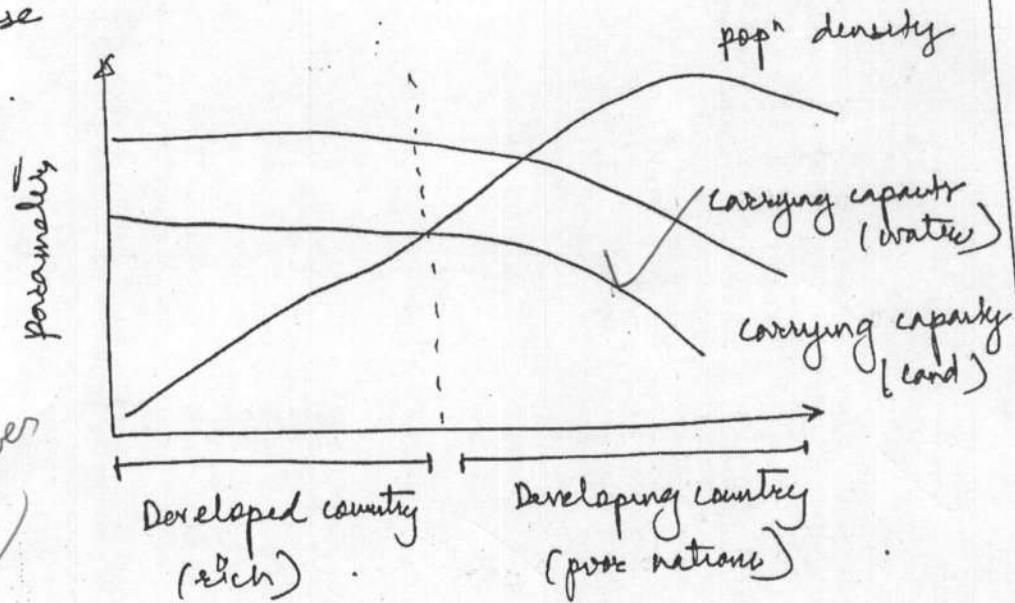 popⁿ density
parameters
carrying capacity
(water)
carrying capacity
(land)
Developed country
(rich)
Developing country
(poor nations)